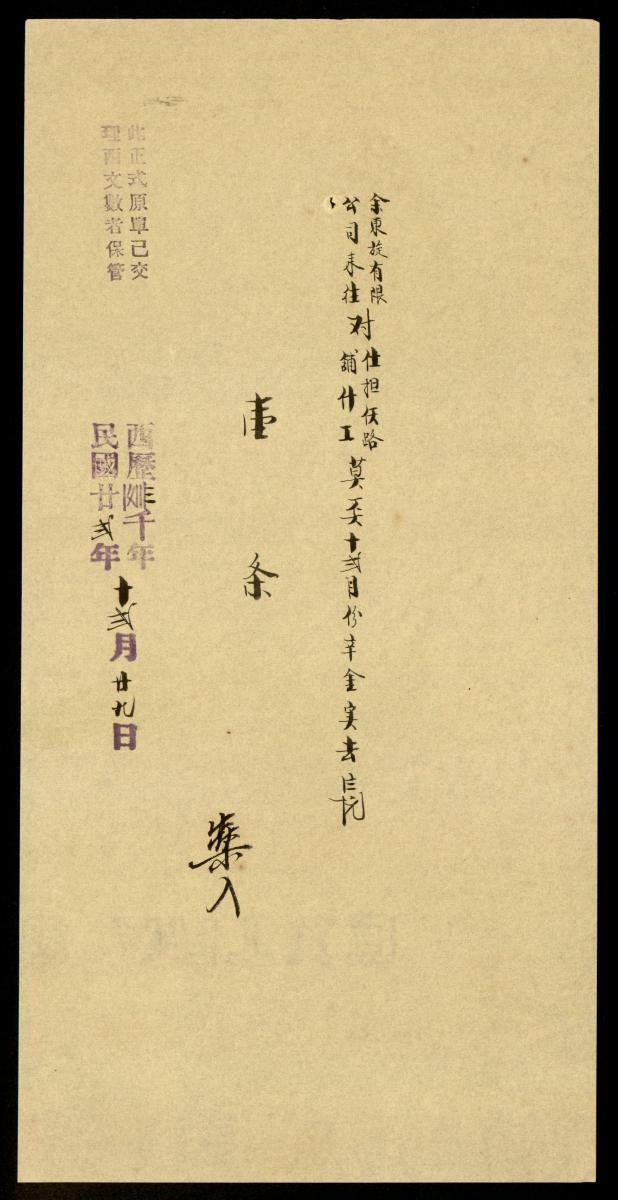 余東旋有限
公司來往
对
仕担伕路
舖什工
莫 十弍月份辛金実去
壹条
入
西歷 千年
民國廿弍年
十弍月廿九日
此正式原單已交
理西文數者保管